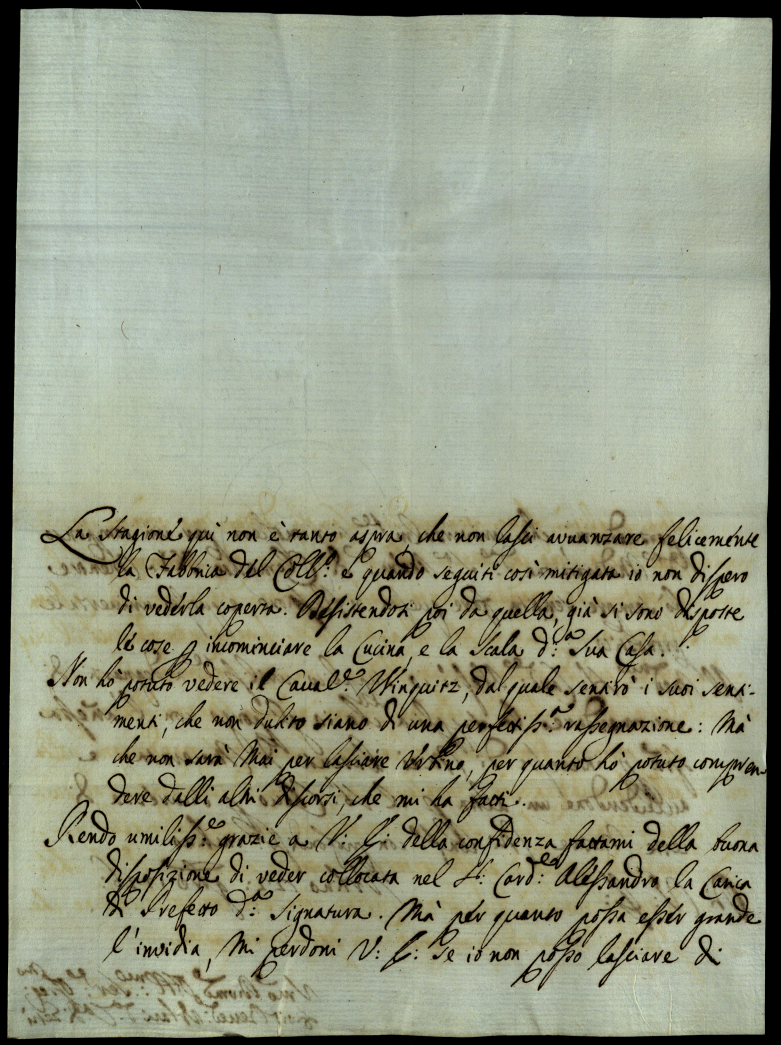 La stagione quì non è tanto aspra, che non lasci avvanzare felicemente
la Fabbrica del Coll.º e quando seguiti così mitigata io non dispero
di vederla coperta. Desistendosi poi da quella, già si sono disposte
le cose p incominciare la Cucina, e la Scala d.ª Sua Casa.
Non hò potuto vedere il Caval.e Winquitz, dal quale sentirò i suoi senti-
menti, che non dubito siano di una perfettiss.ª rassegnazione: Mà
che non sarà Mai per lasciare Urbino, per quanto hò potuto compren-
dere dalli altri discorsi, che mi ha fatti.
Rendo umiliss.e grazie a V: S: della confidenza fattami della buona
disposizione di veder collocata nel S: Card.e Alessandro la Carica
di Prefetto d.ª Signatura. Mà per quanto possa esser grande
l'invidia, Mi perdoni V: S: se io non posso lasciare di